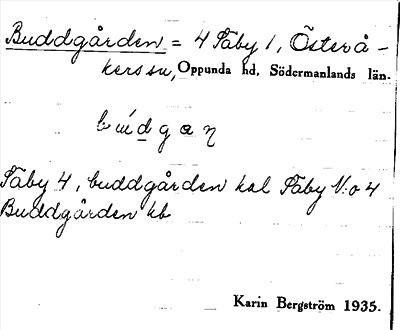 Buddgården = 4 Täby 1, Österå-
kers sn, Oppunda hd, Södermanlands län.
búdgaꞃ
Täby 4, buddgården kal Täby N:o 4
Buddgården kb
Karin Bergström 1935.